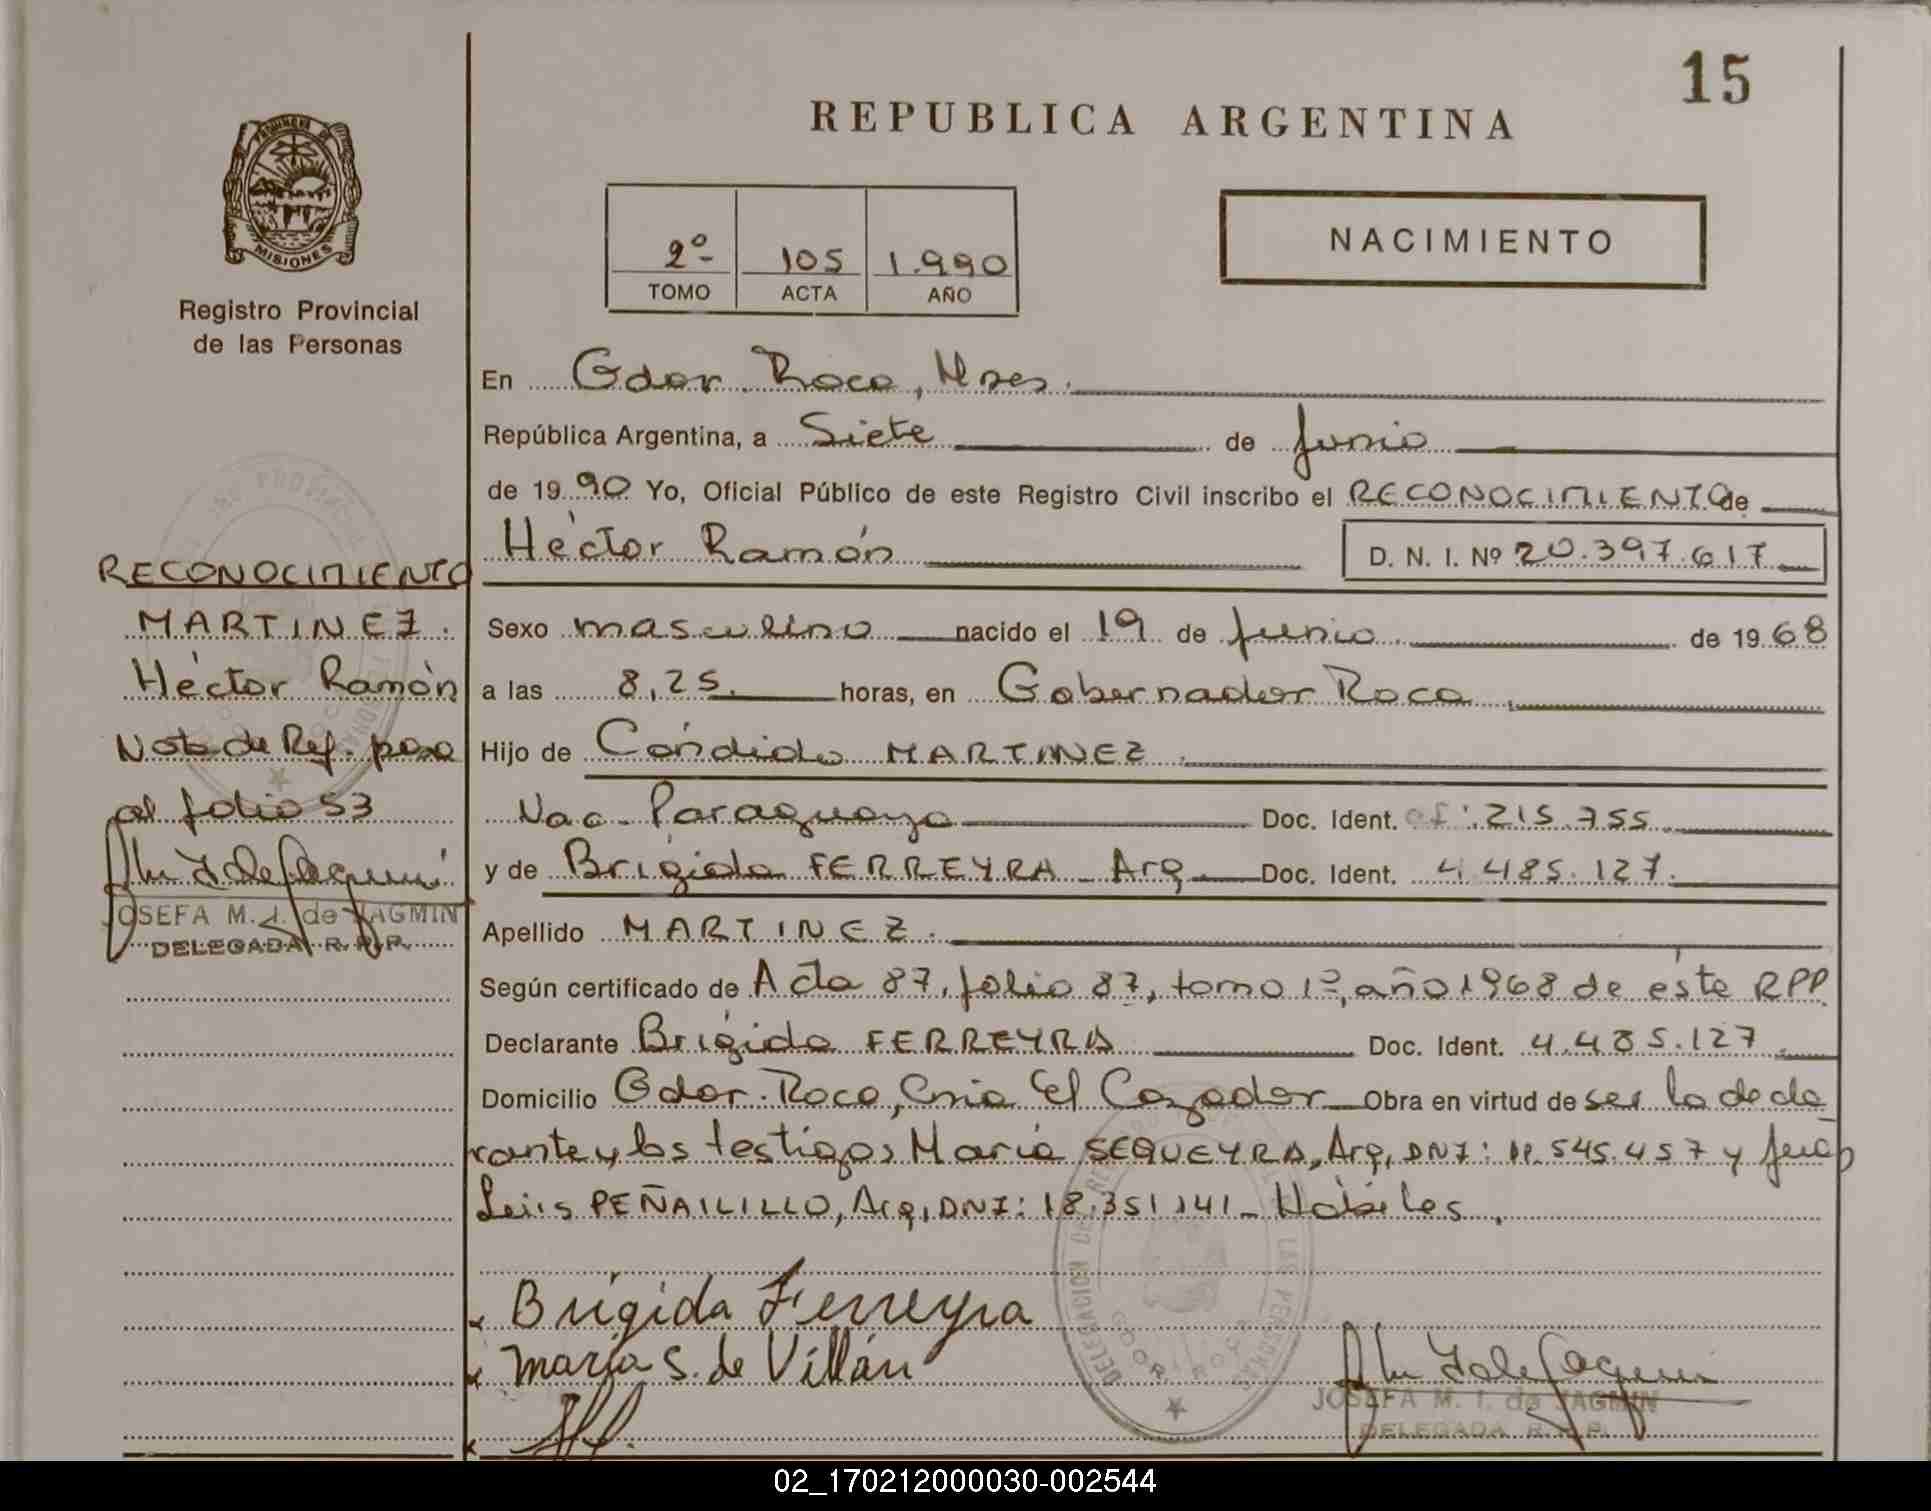 15
REPUBLICA ARGENTINA
PROVINCIA DE
MISIONES
Registro Provincial
de las Personas
2º 105 1.990
TOMO ACTA AÑO
NACIMIENTO
En Gdor. Roca, Mnes.
República Argentina, a Siete de Junio
de 1990 Yo, Oficial Público de este Registro Civil inscribo el RECONOCIMIENTO de
Héctor Ramón D. N. I. Nº 20.397.617
Sexo masculino nacido el 19 de Junio de 1968
a las 8,25. horas, en Gobernador Roca
Hijo de Cándido MARTINEZ
Nac. Paraguaya Doc. Ident. 215.755
y de Brígida FERREYRA - Arg. Doc. Ident. 4.485.127.
Apellido MARTINEZ.
Según certificado de Acta 87, folio 87, tomo 1º, año 1968 de éste RPP.
Declarante Brígida FERREYRA Doc. Ident. 4.485.127
Domicilio Gdor. Roca, Cnia El Cazador Obra en virtud de ser la decla
rante y los testigos María SEQUEYRA, Arg, DNI: 545.457 y Juan
Luis PEÑAILILLO, Arg, DNI: 18.351.141 - Hábiles.
x Brigida Ferreyra
x maria S. de Villán
x
JOSEFA M. I. de JAGMIN
DELEGADA R.P.P.
RECONOCIMIENTO
MARTINEZ.
Héctor Ramón
Nota de Ref. pasa
al folio 53
JOSEFA M. I. de JAGMIN
DELEGADA R.P.P.
DELEGACION DE LAS PERSONAS
GDOR. ROCA
02_170212000030-002544